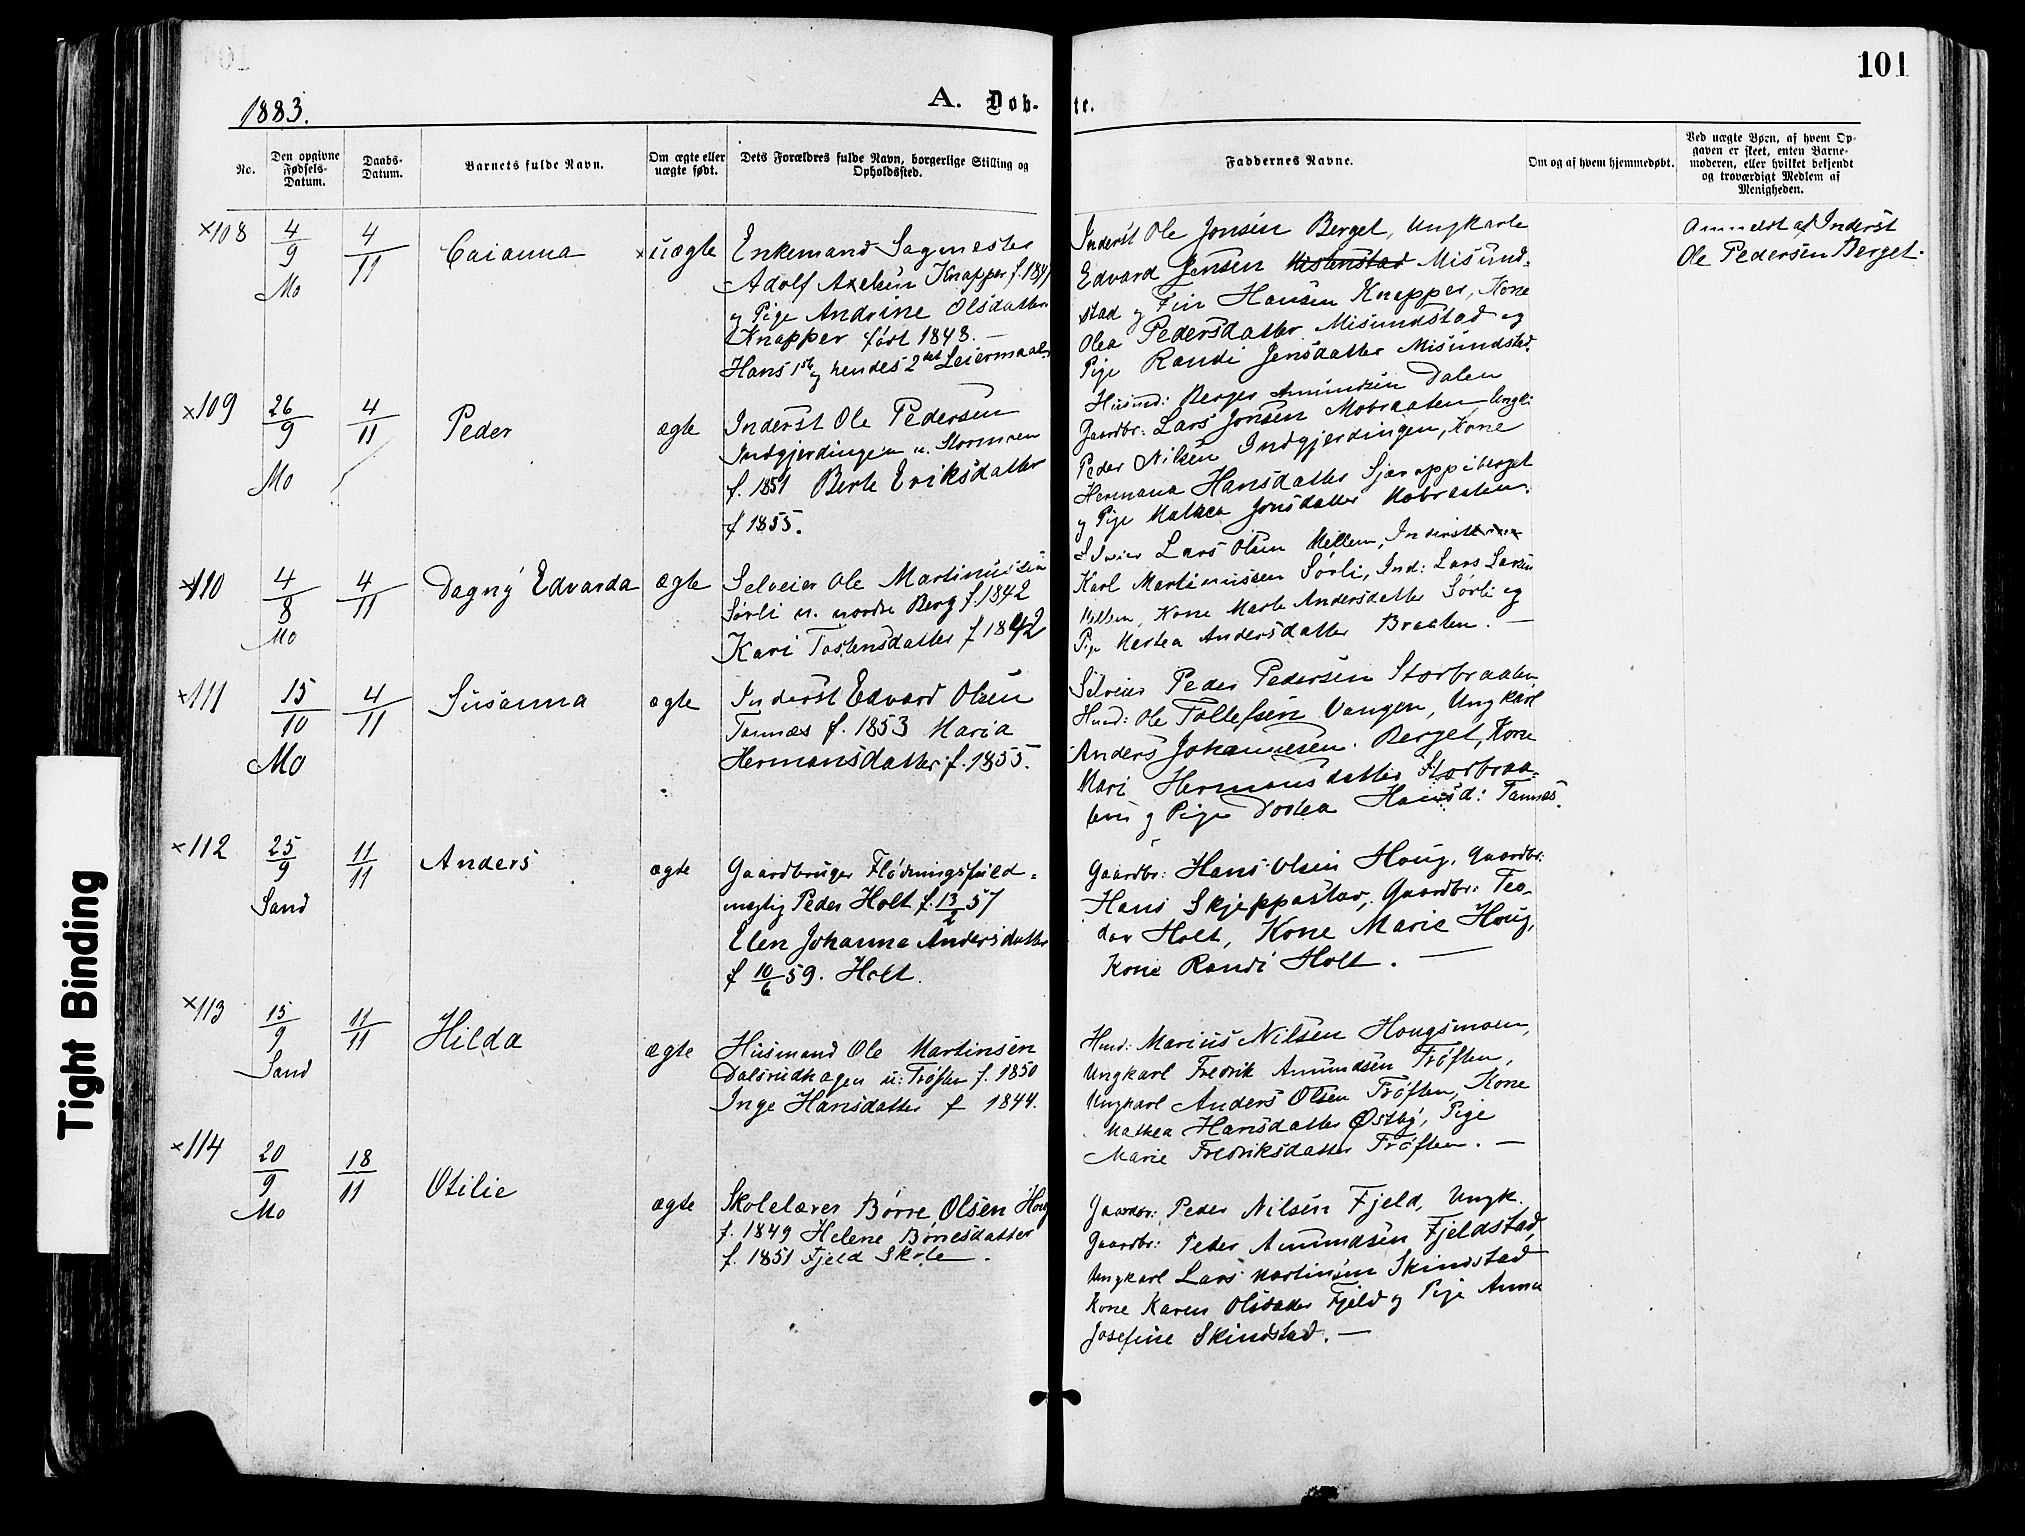 101
1883.
A. Døb-
te.
No.
Den opgivne
Fødsels-
Datum.
Daabs-
Datum.
Barnets fulde Navn.
Om ægte eller
uægte født.
Dets Forældres fulde Navn, borgerlige Stilling og
Opholdssted.
Faddernes Navne.
Om og af hvem hjemmedøbt.
Ved uægte Børn, af hvem Op-
gaven er skeet, enten Barne-
moderen, eller hvilket bekjendt
og troværdigt Medlem af
Menigheden.
×108
4/9
Mo
4/11
Caianna
×uægte
Enkemand Sagmester
Adolf Axelsen Knapper f. 1841
og Pige Andrine Olsdatter
Knapper født 1843. —
Hans 1ste og hendes 2det Leiermaal
Inderst Ole Jonsen Berget, Ungkarle
Edvard Jensen Misund-
stad og Fin Hansen Knapper, Kone
Olea Pedersdatter Misundstad og
Pige Randi Jensdatter Misundstad.
Anmeldt af Inderst
Ole Pedersen Berget.
×109
26/9
Mo
4/11
Peder
ægte
Inderst Ole Pedersen
Indgjerdingen u. Stormoen
f. 1851 Berte Eriksdatter
f 1855.
Husmd: Berger Amundsen Dalen
Gaardbr: Lars Jonsen Mobraaten, Ungk:
Peder Nilsen Indgjerdingen, Kone
Hermana Hansdatter Sjæroppiberget
og Pige Mathea Jonsdatter Mobraaten.
×110
4/8
Mo
4/11
Dagny Edvarda
ægte
Selveier Ole Martinussen
Sørli u. nordre Berg f. 1842
Kari Tostensdatter f 1842
Selveier Lars Olsen Mellem, Inderst
Karl Martinussen Sørli, Ind: Lars Larsen
Mellem, Kone Marte Andersdatter Sørli og
Pige Martea Andersdatter Braaten. —
×111
15/10
Mo
4/11
Susanna
ægte
Inderst Edvard Olsen
Tannæs f. 1853 Maria
Hermansdatter f. 1855.
Selveier Peder Pedersen Storbraaten
Husd: Ole Tollefsen Vangen, Ungkarl
Anders Johannesen Berget, Kone
Mari Hermansdatter Storbraa-
ten og Pige Dortea Hansd: Tannæs.
×112
25/9
Sand
11/11
Anders
ægte
Gaardbruger Flødningsfuld-
mægtig Peder Holt f. 13/2 57
Elen Johanna Andersdatter
f 10/6 59. Holt.
Gaardbr: Hans Olsen Houg, Gaardbr:
Hans Skjeppastad, Gaardbr: Teo-
dor Holt, Kone Marie Houg,
Kone Randi Holt. —
×113
15/9
Sand
11/11
Hilda
ægte
Husmand Ole Martinsen
Dalsrudhagen u: Trøften f. 1850
Inge Hansdatter f 1844.
Husd: Marius Nilsen Hougsmoen,
Ungkarl Fredrik Amundsen Trøften,
Ungkarl Anders Olsen Trøften, Kone
Mathea Hansdatter Østby, Pige
Marie Fredriksdatter Trøften. —
×114
20/9
Mo
18/11
Otilie
ægte
Skolelærer Børre Olsen Houg
f. 1849 Helene Børresdatter
f. 1851 Fjeld Skole.
Gaardbr: Peder Nilsen Fjeld, Ungk.
Gaardbr: Peder Amundsen Fjeldstad,
Ungkarl Lars Martinsen Skindstad
Kone Karen Olsdatter Fjeld og Pige Anna
Josefine Skindstad. —
Tight Binding